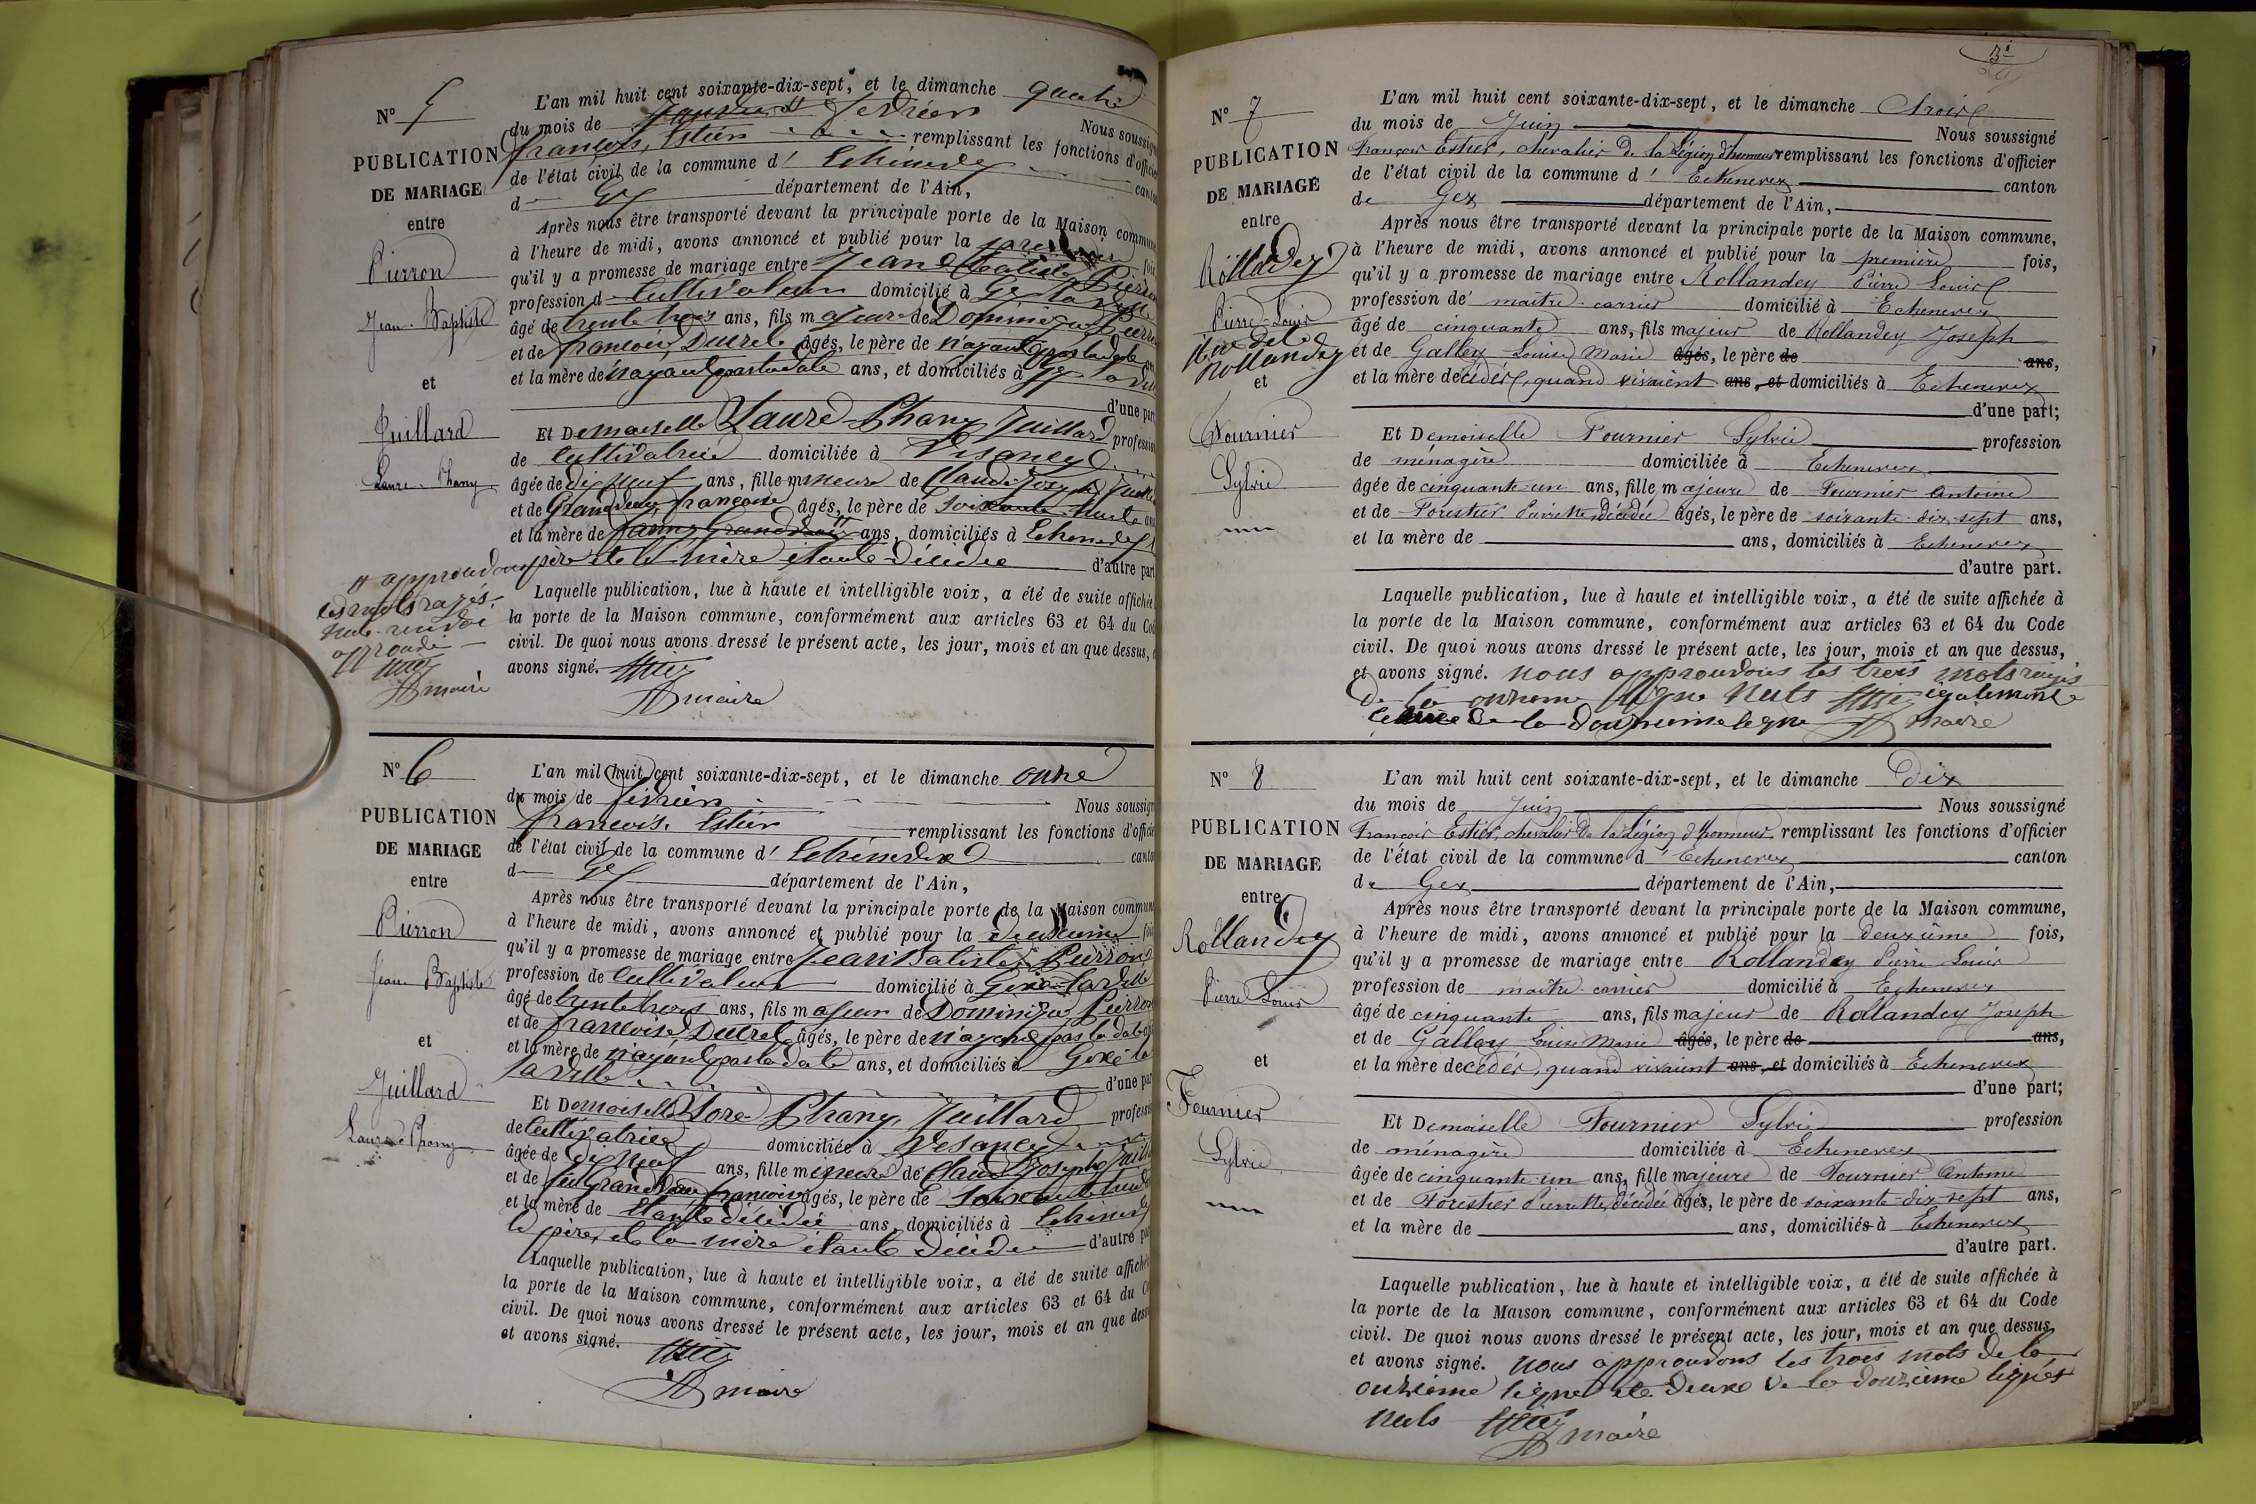 N° 5
PUBLICATION
DE MARIAGE
entre
Pierron
Jean-Baptiste
et
Juillard
Laure-Phany
approuvons
les mots rayés
nuls
approuvé
maire
L'an mil huit cent soixante-dix-sept, et le dimanche quatre
du mois de février Nous soussigné
François Estier remplissant les fonctions d'officier
de l'état civil de la commune d' Echenevex canton
d Gex département de l'Ain,
Après nous être transporté devant la principale porte de la Maison commune
à l'heure de midi, avons annoncé et publié pour la première fois
qu'il y a promesse de mariage entre Jean Batiste Pierron
profession d cultivateur domicilié à Gex la ville
âgé de trente trois ans, fils majeur de Dominique Pierron
et de françoise Ducret âgés, le père de n'ayant pas la date ans
et la mère de n'ayant pas la date ans, et domiciliés à Gex la ville
d'une part
Et Demoiselle Laure Phany Juillard profession
de cultivatrice domiciliée à Vesancy
âgée de dix neuf ans, fille mineure de Claude Joseph Juillard
et de Grandvaux françoise âgés, le père de soixante huit ans
et la mère de ans, domiciliés à Echenevex
père et la mère étante décédée d'autre part
Laquelle publication, lue à haute et intelligible voix, a été de suite affichée
la porte de la Maison commune, conformément aux articles 63 et 64 du Code
civil. De quoi nous avons dressé le présent acte, les jour, mois et an que dessus,
avons signé.
maire
N° 6
PUBLICATION
DE MARIAGE
entre
Pierron
Jean-Baptiste
et
Juillard
Laure-Phany
L'an mil huit cent soixante-dix-sept, et le dimanche onze
du mois de février Nous soussigné
françois Estier remplissant les fonctions d'officier
de l'état civil de la commune d' Echenevex canton
d Gex département de l'Ain,
Après nous être transporté devant la principale porte de la Maison commune
à l'heure de midi, avons annoncé et publié pour la deuxième fois
qu'il y a promesse de mariage entre Jean Batiste Pierron
profession de cultivateur domicilié à Gexe la ville
âgé de trente trois ans, fils majeur de Dominique Pierron
et de françoise Ducret âgés, le père de n'ayant pas la date
et la mère de n'ayant pas la date ans, et domiciliés à Gexe la
la ville d'une part
Et Demoiselle Lore Phany Juillard profession
de cultivatrice domiciliée à Vesancy
âgée de dix neuf ans, fille mineure de Claude Joseph Juillard
et de feu Grandvaux françoise âgés, le père de soixante huit
et la mère de étante décédée ans, domiciliés à Echenevex
le père, et la mère étante décédée d'autre part
Laquelle publication, lue à haute et intelligible voix, a été de suite affichée
la porte de la Maison commune, conformément aux articles 63 et 64 du
civil. De quoi nous avons dressé le présent acte, les jour, mois et an que dessus
et avons signé.
maire
N° 7
PUBLICATION
DE MARIAGE
entre
Rollandey
Pierre-Louis
Rollandey
et
Fournier
Sylvie
L'an mil huit cent soixante-dix-sept, et le dimanche trois
du mois de Juin Nous soussigné
François Estier, chevalier de la Légion d'honneur remplissant les fonctions d'officier
de l'état civil de la commune d' Echenevex canton
de Gex département de l'Ain,
Après nous être transporté devant la principale porte de la Maison commune,
à l'heure de midi, avons annoncé et publié pour la première fois,
qu'il y a promesse de mariage entre Rollandey Pierre Louis
profession de maître-carrier domicilié à Echenevex
âgé de cinquante ans, fils majeur de Rollandey Joseph
et de Galley Louise Marie âgés, le père de ans,
et la mère décédés, quand vivaient ans, et domiciliés à Echenevex
d'une part;
Et Demoiselle Fournier Sylvie profession
de ménagère domiciliée à Echenevex
âgée de cinquante-un ans, fille majeure de Fournier Antoine
et de Forestier Pierrette, décédée âgés, le père de soixante-dix-sept ans,
et la mère de ans, domiciliés à Echenevex
d'autre part.
Laquelle publication, lue à haute et intelligible voix, a été de suite affichée à
la porte de la Maison commune, conformément aux articles 63 et 64 du Code
civil. De quoi nous avons dressé le présent acte, les jour, mois et an que dessus,
et avons signé. nous approuvons les trois mots rayés
de la onzième ligne nuls également
de la douzième ligne maire
N° 8
PUBLICATION
DE MARIAGE
entre
Rollandey
Pierre Louis
et
Fournier
Sylvie
L'an mil huit cent soixante-dix-sept, et le dimanche dix
du mois de Juin Nous soussigné
François Estier, chevalier de la Légion d'honneur, remplissant les fonctions d'officier
de l'état civil de la commune d' Echenevex canton
de Gex département de l'Ain,
Après nous être transporté devant la principale porte de la Maison commune,
à l'heure de midi, avons annoncé et publié pour la deuxième fois,
qu'il y a promesse de mariage entre Rollandey Pierre Louis
profession de maître-carrier domicilié à Echenevex
âgé de cinquante ans, fils majeur de Rollandey Joseph
et de Galley Louise Marie âgés, le père de ans,
et la mère décédés, quand vivaient ans, et domiciliés à Echenevex
d'une part;
Et Demoiselle Fournier Sylvie profession
de ménagère domiciliée à Echenevex
âgée de cinquante-un ans, fille majeure de Fournier Antoine
et de Forestier Pierrette, décédée âgés, le père de soixante-dix-sept ans,
et la mère de ans, domiciliés à Echenevex
d'autre part.
Laquelle publication, lue à haute et intelligible voix, a été de suite affichée à
la porte de la Maison commune, conformément aux articles 63 et 64 du Code
civil. De quoi nous avons dressé le présent acte, les jour, mois et an que dessus,
et avons signé. nous approuvons les trois mots de la
onzième ligne et deuxe de la douzième lignes
nuls maire